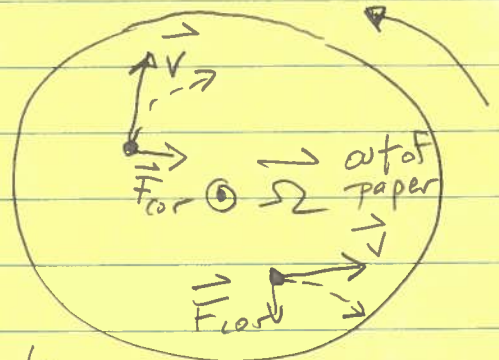 V
F cor
⊙ Ω out of
paper
V
F cor